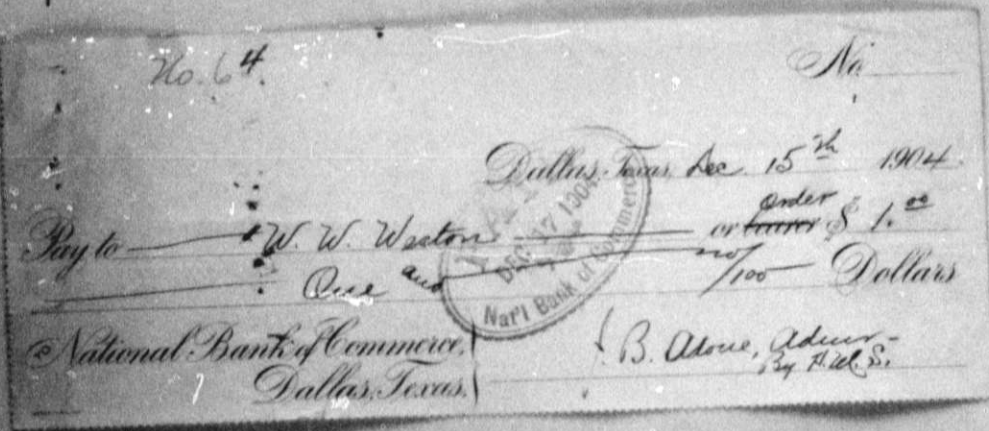 No. 64. No
Dallas, Texas, Dec. 15th 1904.
Pay to W. W. Weston or bearer order $ 1.00
One and no/100 Dollars
PAID
DEC 17 1904
Nat'l Bank of Commerce
To National Bank of Commerce,
Dallas, Texas.
B. Adoue, Admr
By A. W. S.